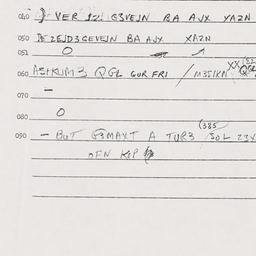 040 VER 12 G3VEJN BA AJX YAZN
050 DEZEJD3GEVEJN BA AJX XAZN
051 O
060 ASIKUM3 QGL GUR FRI / M3SIKN XX
070 –
080 O
090 – BUT G3MAXT A TUR3 (385 SOL 23V
OFN KOP